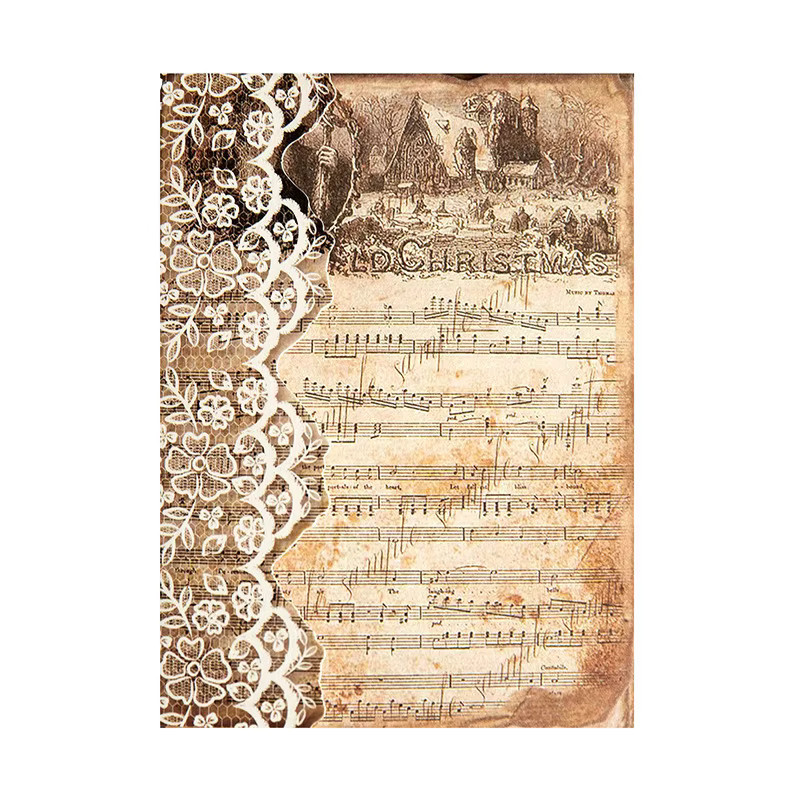 LD CHRISTMAS
MUSIC BY THOMAS
ped.
ped.
the por
portals of the heart, Let fall bliss a-bound,
The laugh-ing bells
ped.
Cantabile.